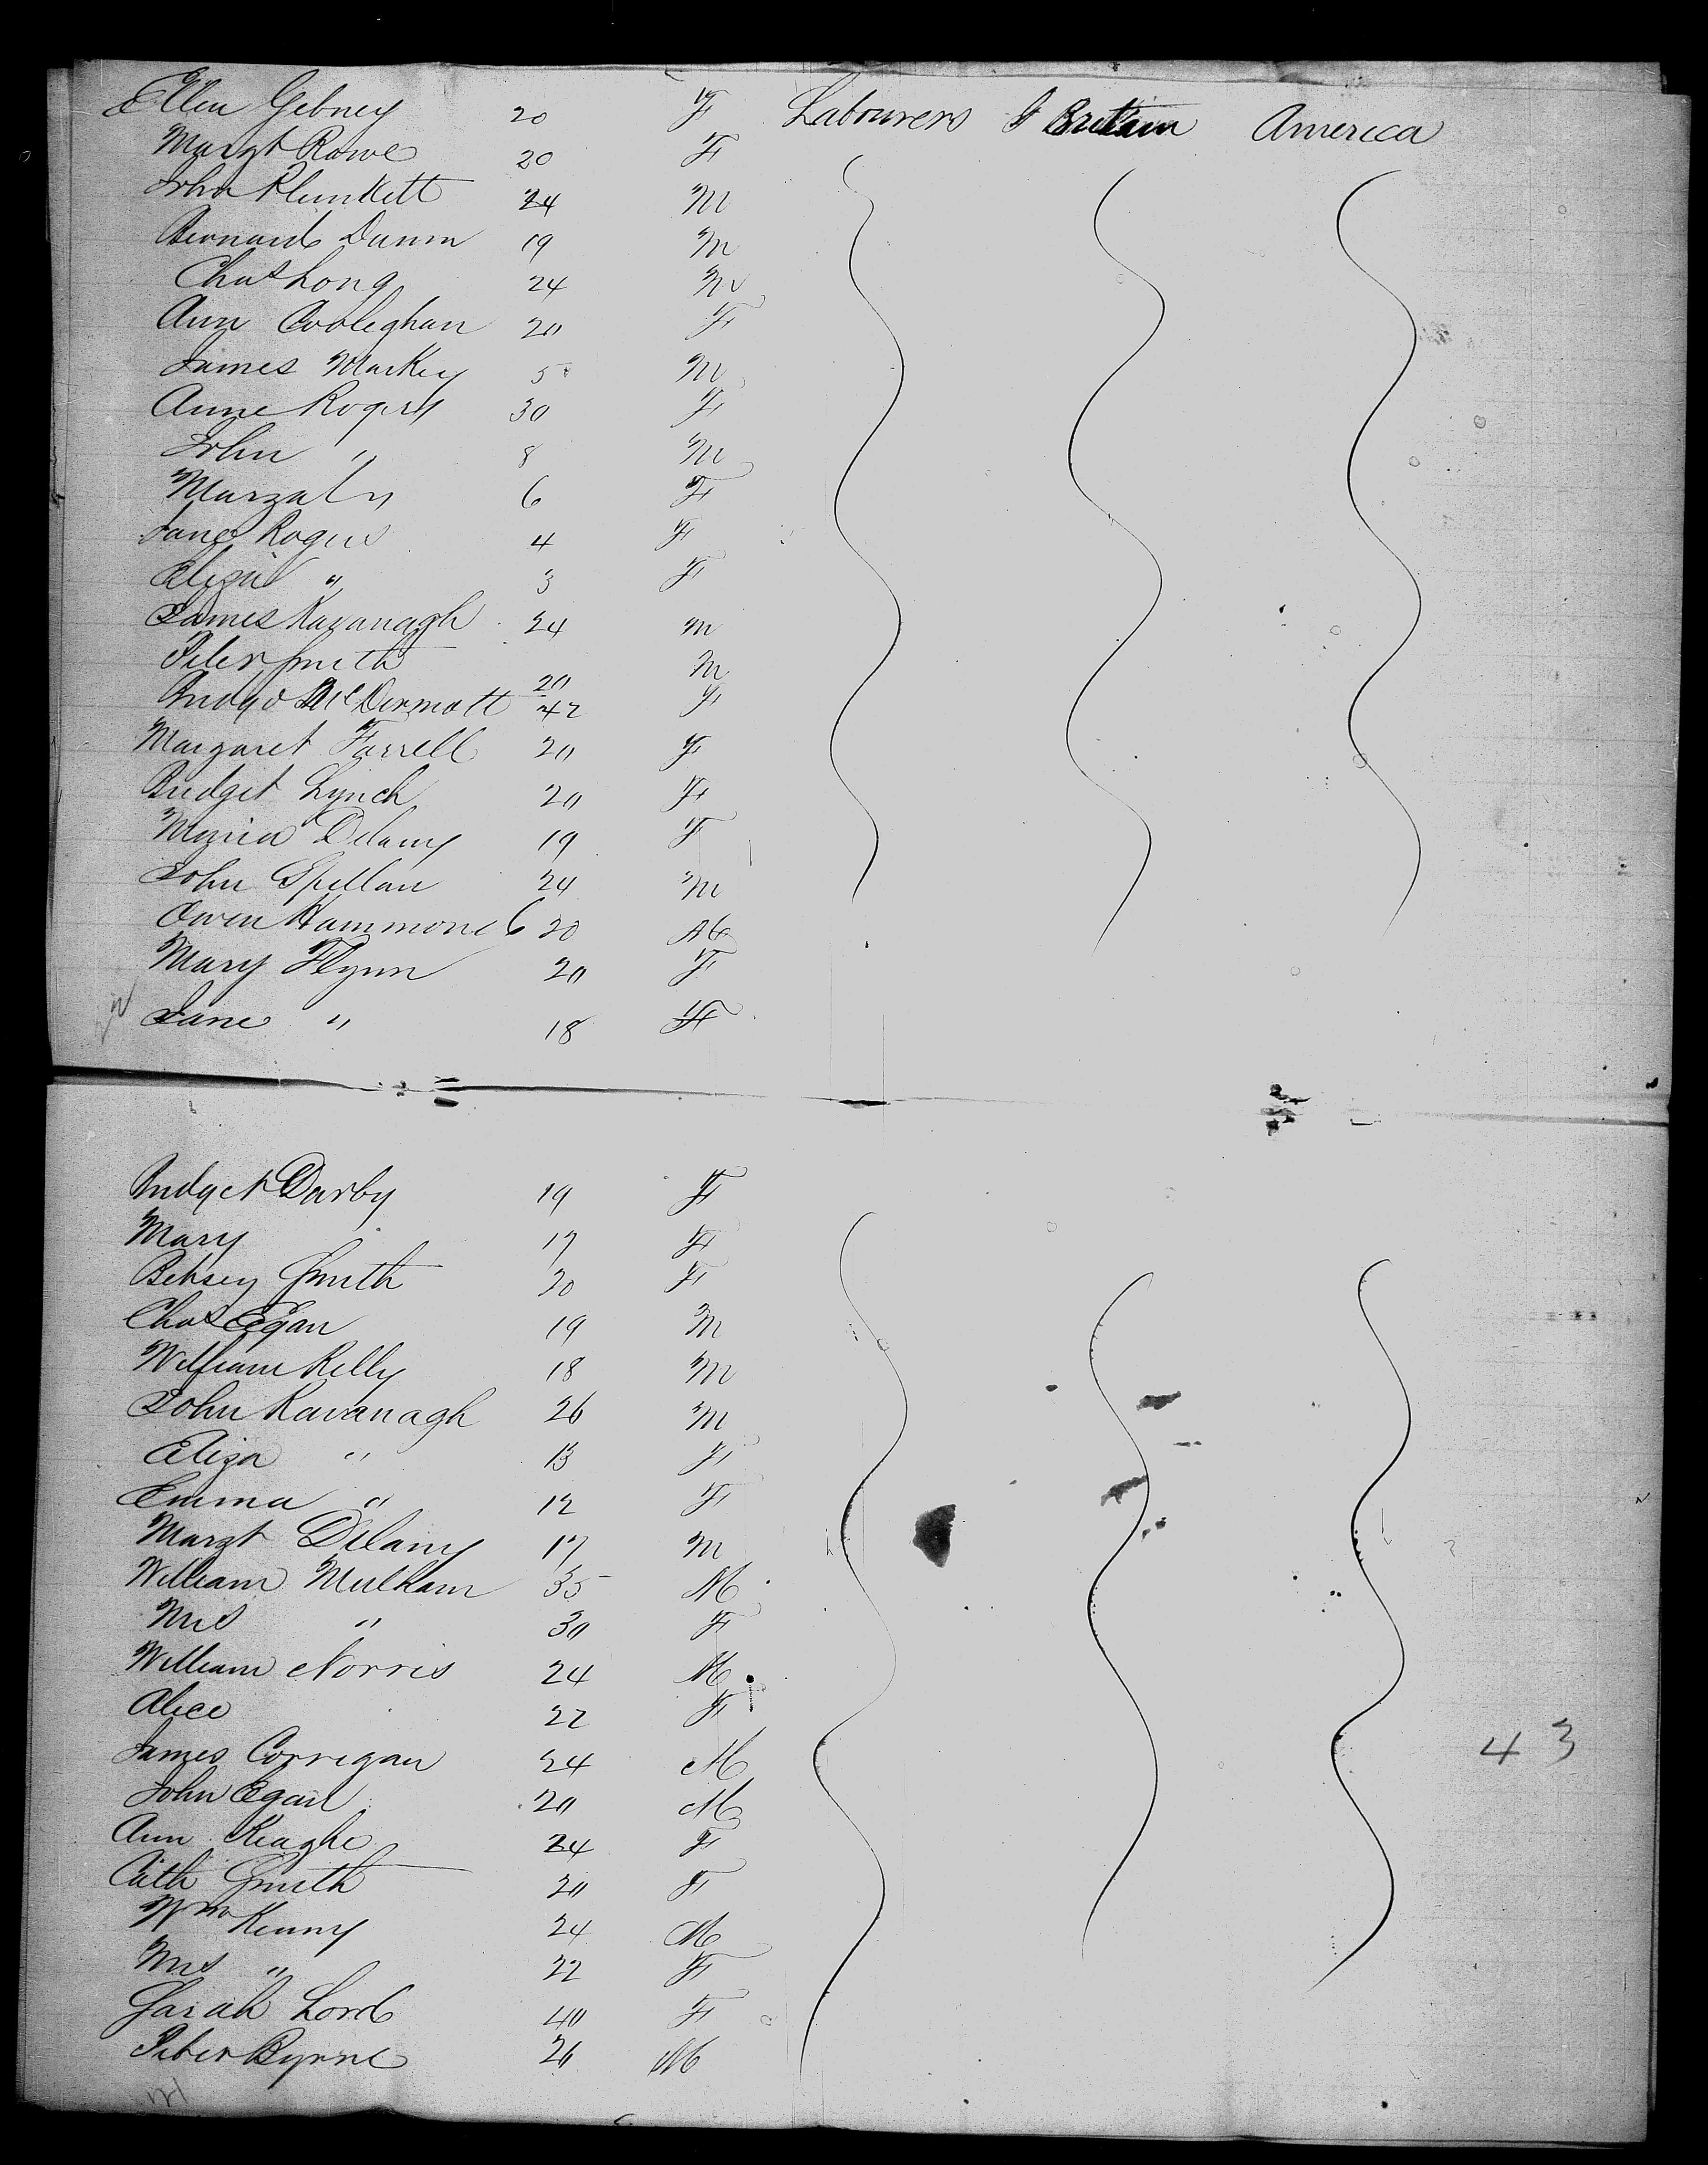 Ellen Gebney 20 F Labourers G Britain America
Margt Rowe 20 F
John Plunkett 24 M
Bernard Dunn 19 M
Chas Long 24 M
Ann Cooleghan 20 F
James Markey 5 M
Anne Rogers 30 F
John " 8 M
Margat " 6 F
Jane Rogers 4 F
Eliza " 3 F
James Kavanagh 24 M
Peter Smith 20 M
Bridgt McDermott 42 F
Margaret Farrell 20 F
Bridget Lynch 20 F
Maria Delany 19 F
John Spellan 24 M
Owen Hammond 20 M
Mary Flynn 20 F
Jane " 18 F
Bridget Darby 19 F
Mary 17 F
Betsey Smith 20 F
Chas Egan 19 M
William Kelly 18 M
John Kavanagh 26 M
Eliza " 13 F
Emma " 12 F
Margt Delany 17 M
William Mulham 35 M
Mrs " 30 F
William Norris 24 M
Alice 22 F
James Corrigan 24 M
43
John Egan 20 M
Ann Keaghe 24 F
Cath Smith 20 F
Wm Kenny 24 M
Mrs " 22 F
Sarah Lord 40 F
Peter Byrne 26 M